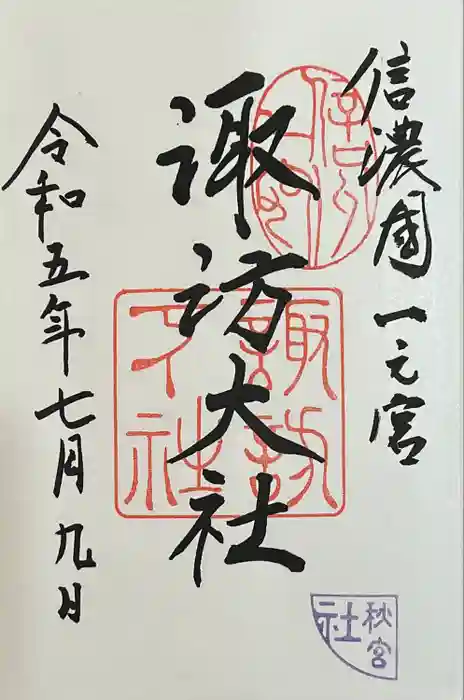 信濃國一之宮
諏訪大社
令和五年七月九日
信州一之宮
諏訪大社
秋宮
社